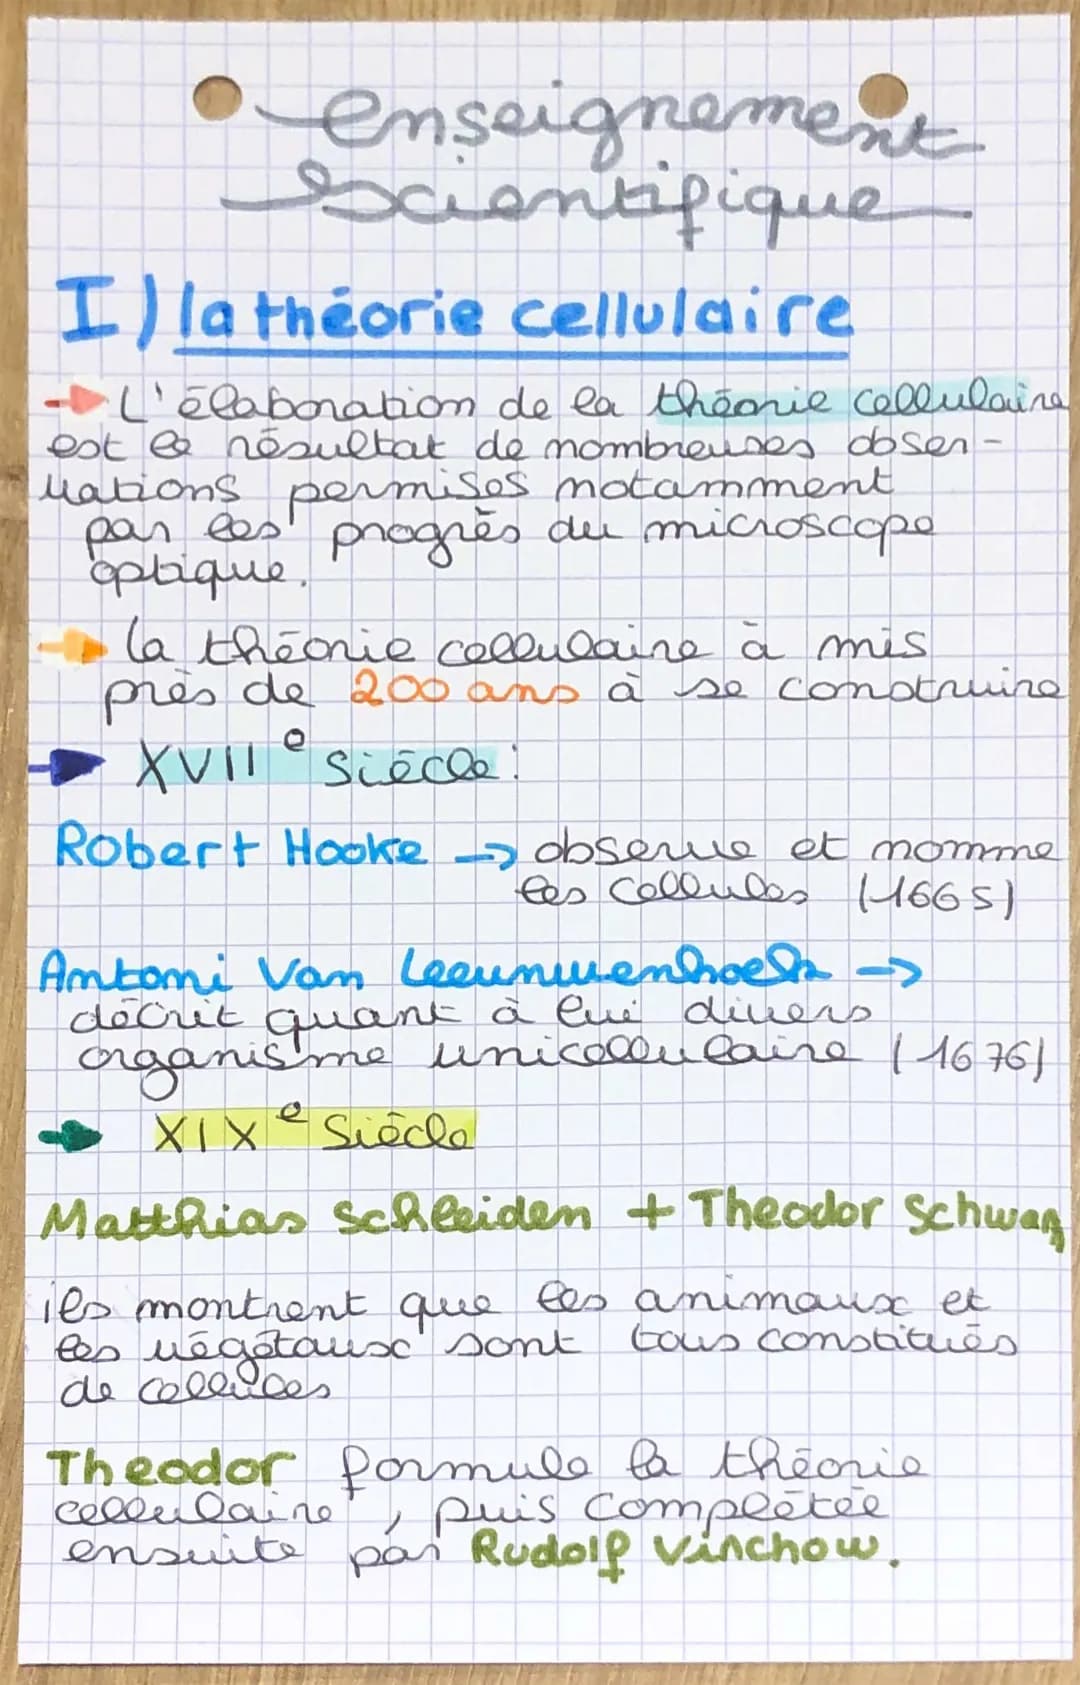 enseignement
scientifique
I) la théorie cellulaire
L'élaboration de la théorie cellulaire
est le résultat de nombreuses obser-
vations permises notamment
par les progrès du microscope
optique.
la théorie cellulaire à mis
près de 200 ans à se construire
XVII e siècle :
Robert Hooke → observe et nomme
les cellules (1665)
Antoni Van Leeunwenhoek →
décrit quant à lui divers
organisme unicellulaire (1676)
XIX e Siècle
Matthias Schleiden + Theodor Schwan
ils montrent que les animaux et
les végétaux sont tous constitués
de cellules
Theodor formule la théorie
cellulaire, puis complétée
ensuite par Rudolf Virchow.